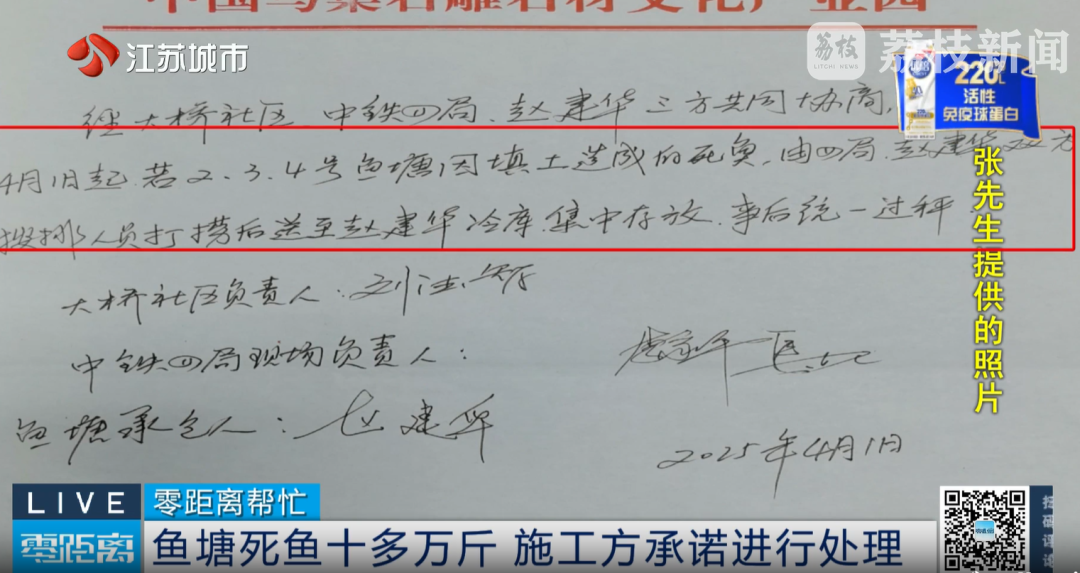 江苏城市
荔枝
LITCHI NEWS
荔枝新闻
220
活性
免疫球蛋白
经大桥社区 中铁四局、赵建华三方共同协商,
4月1日起,若2、3、4号鱼塘因填土造成的死鱼,由四局、赵建华双方
安排人员打捞后送至赵建华冷库,集中存放,事后统一过秤
大桥社区负责人:
中铁四局现场负责人:
鱼塘承包人:赵建华
2025年4月1日
张先生提供的照片
LIVE
零距离帮忙
零距离
鱼塘死鱼十多万斤 施工方承诺进行处理